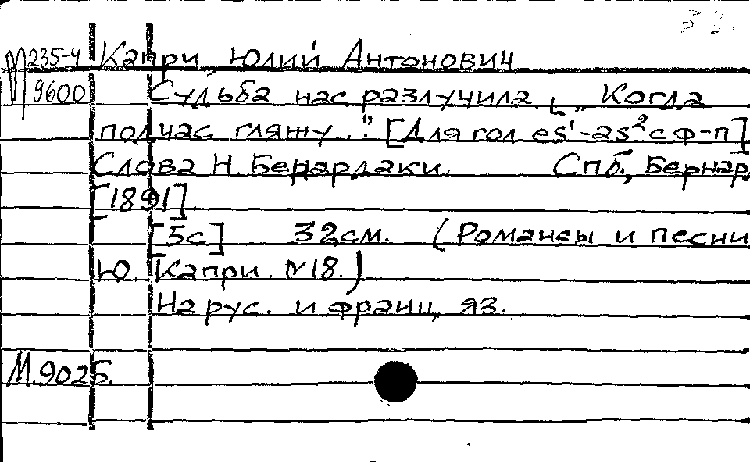 М 235-4 Капри Юлий Антонович
9600 Судьба нас разлучила. („Когда
подчас гляжу.." [Для гол es¹-as² с ф-п]
Слова Н. Бенардаки. Спб., Бернар
[1891].
[5с] 32см. (Романсы и песни
Ю. Капри. №18.)
На рус. и франц. яз.
М.9025.